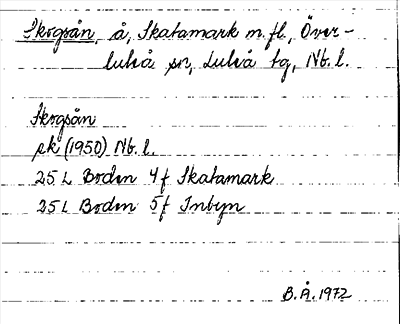 Skogsån, å, Skatamark m. fl., Över-
luleå sn, Luleå tg, Nb. l.
Skogsån
ek (1950) Nb. l.
25 L Boden 4 f Skatamark
25 L Boden 5 f Inbyn
B. Å. 1972